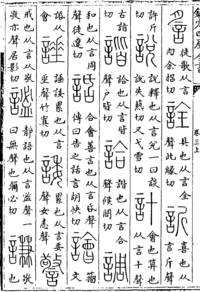 卷三上
䚻徒歌从言肉余招切詮具也从言全聲此緣切訢喜也从言斤聲
許斤切說說釋也从言兌一曰談說失爇切又弋雪切計會也筭也从言从十
古詣切諧詥也从言皆聲戶皆切詥諧也从言合聲候閤切調
和也从言周聲徒遼切話合會善言也从言𠯑聲傳曰告之話言胡快切譮籀文
諈諈諉纍也从言垂聲竹寘切諉纍也从言委聲女恚切警
戒也从言从敬敬亦聲居影切謐靜語也从言𥁑聲一曰無聲也彌必切謙敬也